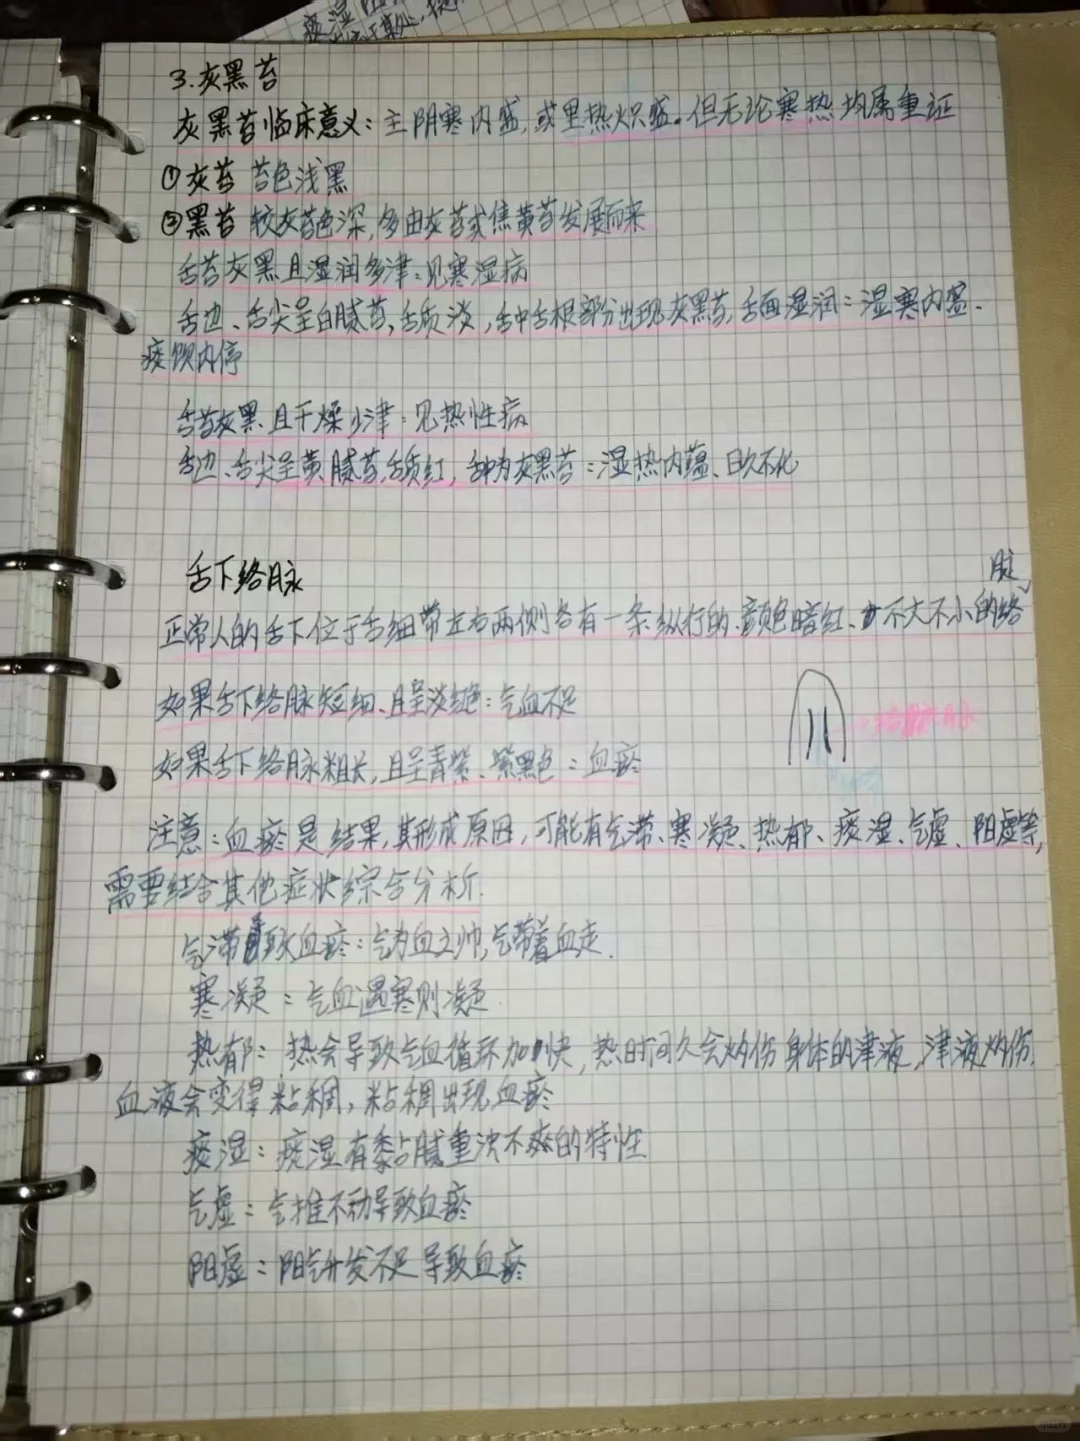 痰湿
3.灰黑苔
灰黑苔临床意义:主阴寒内盛,或里热炽盛。但无论寒热均属重证
①灰苔 苔色浅黑
②黑苔 较灰苔色深,多由灰苔或焦黄苔发展而来
舌苔灰黑且湿润多津:见寒湿病
舌边、舌尖呈白腻苔,舌质淡,舌中舌根部分出现灰黑苔,舌面湿润:湿寒内盛、
痰饮内停
舌苔灰黑且干燥少津:见热性病
舌边、舌尖呈黄腻苔,舌质红,舌中为灰黑苔:湿热内蕴、日久不化
舌下络脉
正常人的舌下位于舌细带左右两侧各有一条纵行的、颜色暗红、不大不小的络脉
如果舌下络脉短细、且呈淡红色:气血不足
如果舌下络脉粗长,且呈青紫、紫黑色:血瘀
注意:血瘀是结果,其形成原因,可能有气滞、寒凝、热郁、痰湿、气虚、阳虚等,
需要结合其他症状综合分析.
气滞致血瘀:气为血之帅,气带着血走.
寒凝:气血遇寒则凝.
热郁:热会导致气血循环加快,热时间久会灼伤身体的津液,津液灼伤,
血液会变得粘稠,粘稠出现血瘀
痰湿:痰湿有黏腻重浊不爽的特性
气虚:气推不动导致血瘀
阳虚:阳气升发不足导致血瘀